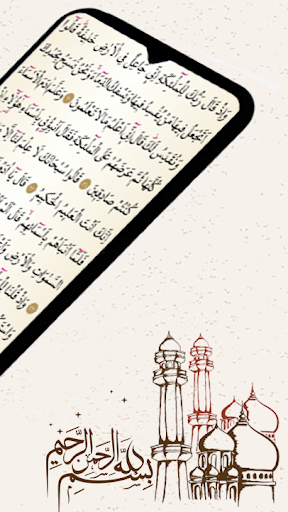 وَإِذْ قَالَ رَبُّكَ لِلْمَلَٰٓئِكَةِ إِنِّي جَاعِلٌ فِي ٱلْأَرْضِ خَلِيفَةً قَالُوٓا۟
أَتَجْعَلُ فِيهَا مَن يُفْسِدُ فِيهَا وَيَسْفِكُ ٱلدِّمَآءَ وَنَحْنُ نُسَبِّحُ بِحَمْدِكَ
وَنُقَدِّسُ لَكَ قَالَ إِنِّيٓ أَعْلَمُ مَا لَا تَعْلَمُونَ وَعَلَّمَ ءَادَمَ ٱلْأَسْمَآءَ
كُلَّهَا ثُمَّ عَرَضَهُمْ عَلَى ٱلْمَلَٰٓئِكَةِ فَقَالَ أَنۢبِـُٔونِي بِأَسْمَآءِ هَٰٓؤُلَآءِ
كُنتُمْ صَٰدِقِينَ قَالُوا۟ سُبْحَٰنَكَ لَا عِلْمَ لَنَآ
إِنَّكَ أَنتَ ٱلْعَلِيمُ ٱلْحَكِيمُ قَالَ
فَلَمَّآ أَنۢبَأَهُم بِأَسْمَآئِهِمْ قَالَ
ٱلسَّمَٰوَٰتِ وَٱلْأَرْضِ
وَإِذْ قُلْنَا
بِسْمِ ٱللَّهِ ٱلرَّحْمَٰنِ ٱلرَّحِيمِ